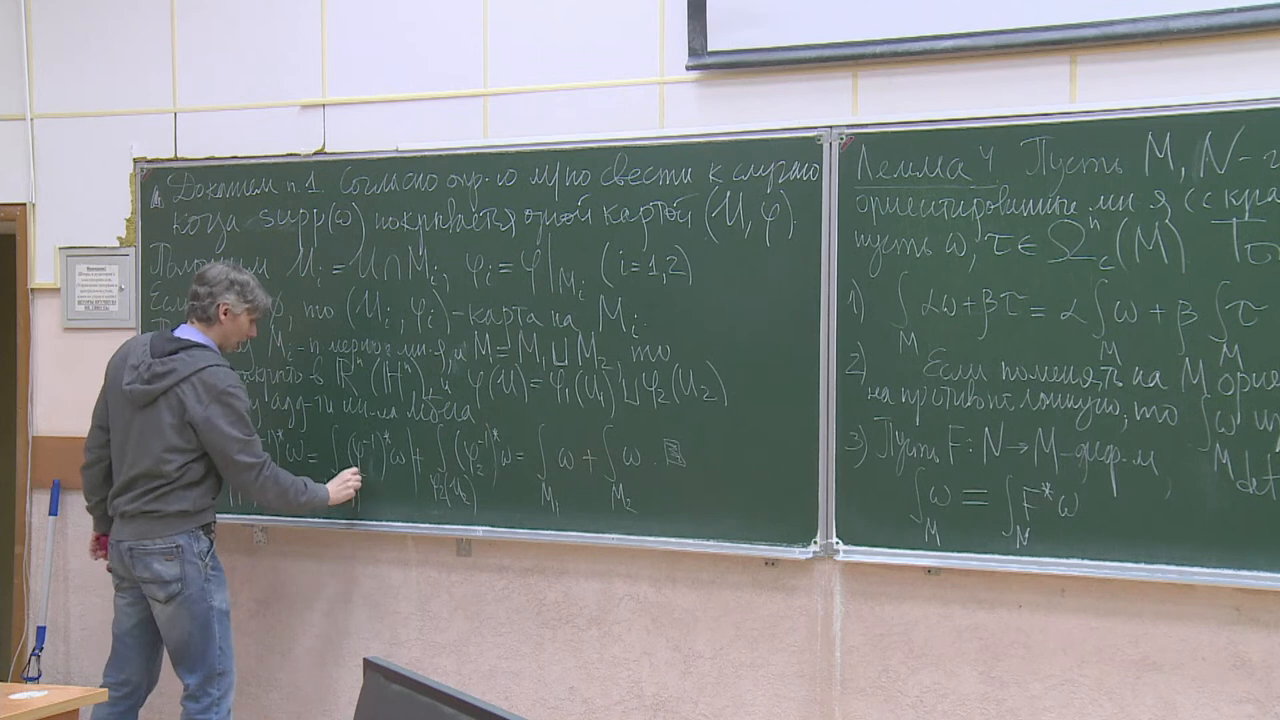 Докажем п.1. Согласно опр-ю м/но свести к случаю
когда supp(ω) покрывается одной картой (U, φ).
Положим U_i = U ∩ M_i, φ_i = φ|_{M_i} (i=1,2)
то (U_i, φ_i) - карта на M_i.
M_i - n мерное мн-я, и M = M_1 ⊔ M_2, то
открыто в ℝⁿ (ℍⁿ), и φ(U) = φ_1(U_1) ⊔ φ_2(U_2)
адд-ти ин-ла Лебега
)^*ω = ∫(φ_1^{-1})^*ω + ∫_{φ_2(U_2)} (φ_2^{-1})^*ω = ∫_{M_1} ω + ∫_{M_2} ω.
Лемма 4 Пусть M, N -
ориентированные мн-я (с кра
пусть ω, τ ∈ Ω_c^n(M).
1) ∫_M αω + βτ = α∫_M ω + β∫_M τ
2) Если поменять на M орие
на противоположную, то ∫_M ω
3) Пусть F: N → M - диф-м,
∫_M ω = ∫_N F^*ω
det